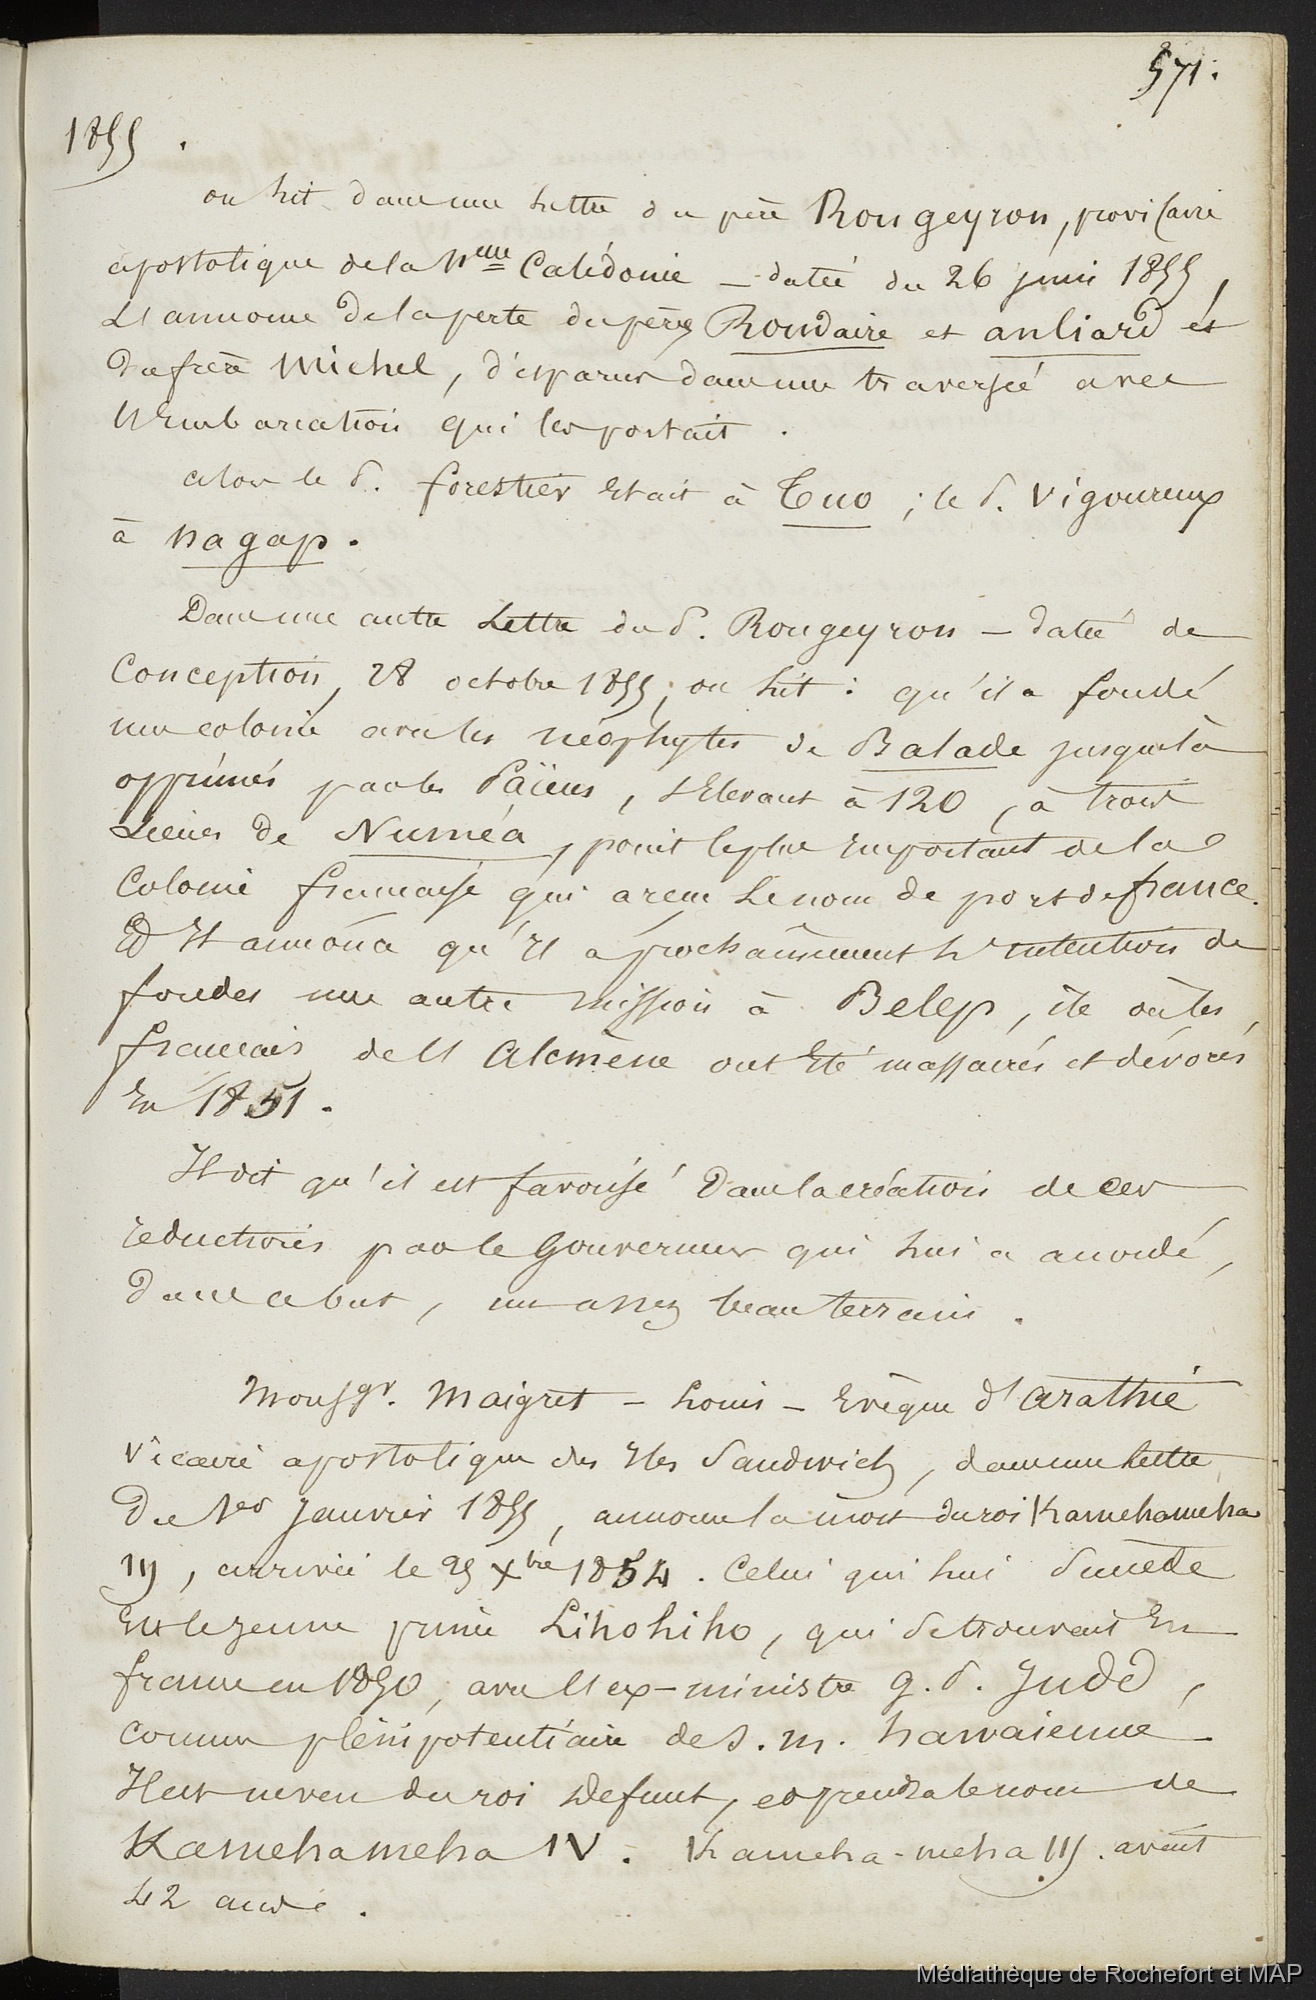 571.
1855.
on lit dans une lettre du père Rougeyron, provicaire
apostolique de la Nlle Calédonie – datée du 26 juin 1855,
L'annonce de la perte des pères Roudaire et anliard et
du frère Michel, disparus dans une traversée avec
l'Embarcation qui les portait.
alors le P. forestier Etait à Tuo ; le P. Vigoureux
à nagap.
Dans une autre Lettre du P. Rougeyron – datée de
Conception, 28 octobre 1855, on lit : qu'il a fondé
une colonie avec les néophytes de Balade jusque là
opprimés par les Païens, s'Elevant à 120, à trois
Lieues de Numéa, point le plus important de la
Colonie française qui a reçu Le nom de port de france.
Et Il annonce qu'Il a prochainement L'intention de
fonder une autre mission à Belep, ile où les
français de l'Alcmène ont Eté massacrés et dévorés
En 1851.
Il dit qu'il est favorisé Dans la création de ces
reductions par le Gouverneur qui lui a accordé,
dans ce but, un assez beau terrain.
Monsgr. Maigret – Louis – Evêque d'Arathie
Vicaire apostolique des Iles Sandwich, dans une lettre
Du 1er Janvier 1855, annonce la mort du roi Kamehameha
III, arrivée le 25 Xbre 1854. Celui qui lui Succède
Est le jeune prince Liholiho, qui se trouvait En
france en 1850, avec l'ex-ministre g. P. Judd,
comme plénipotentiaire de S. m. hawaienne.
Il est neveu du roi defunt, et prendra le nom de
Kamehameha IV. Kameha-meha III. avait
42 ans.
Médiathèque de Rochefort et MAP